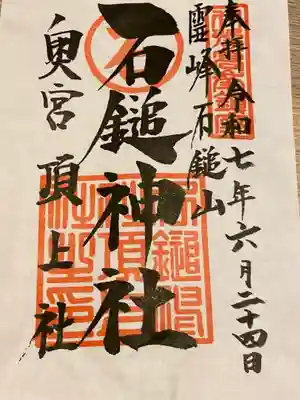 奉拝 令和七年六月二十四日
霊峰石鎚山
石鎚神社
奥宮頂上社